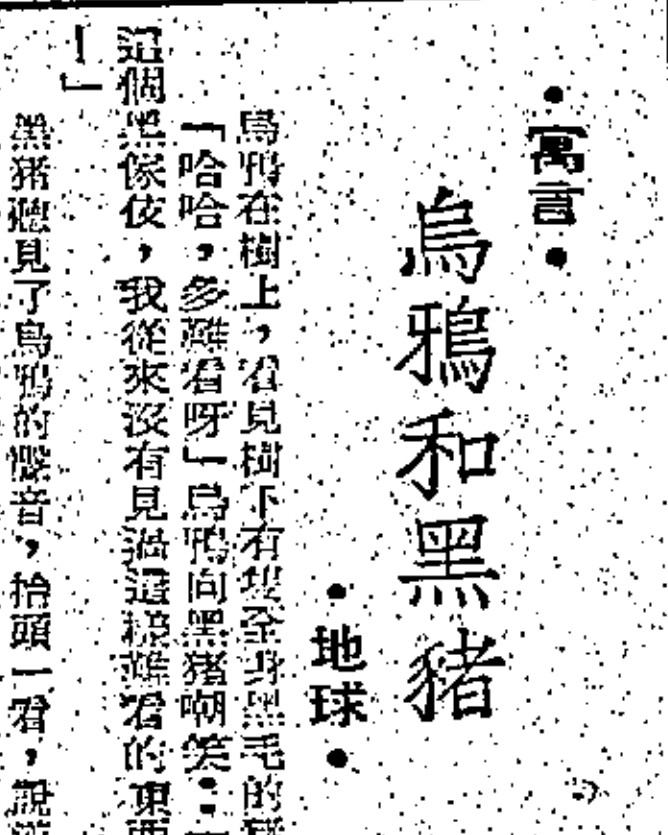 •寓言•
烏鴉和黑豬
•地球•
烏鴉在樹上，看見樹下有隻全身黑毛的豬
「哈哈，多難看呀」烏鴉向黑豬嘲笑：「
這個黑傢伙，我從來沒有見過這樣難看的東西
！」
黑豬聽見了烏鴉的聲音，抬頭一看，說